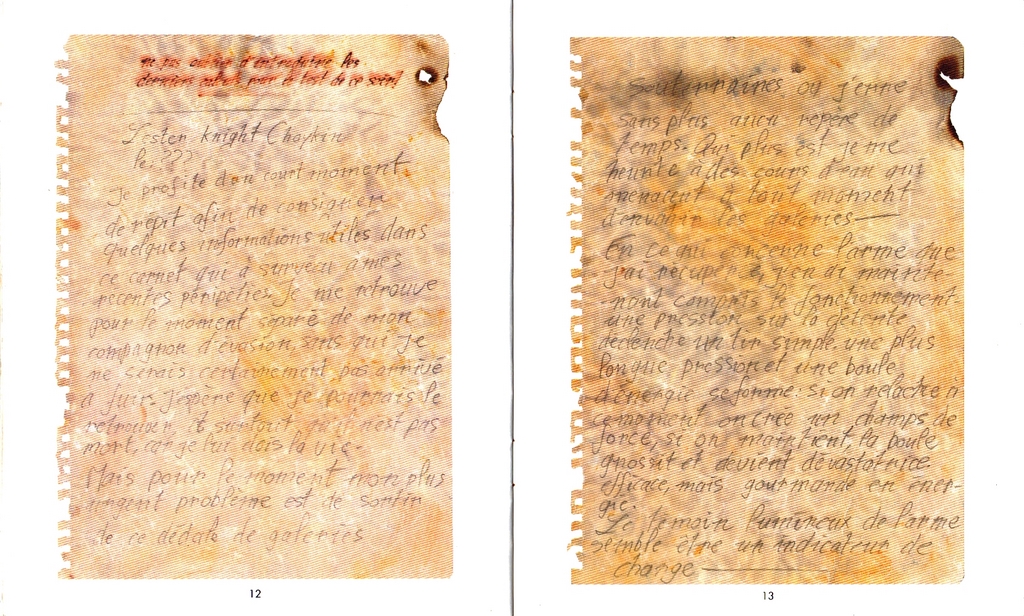 ne pas oublier d'entreduire les
derniers oubl pour en tout de ce soir!
Lester Knight Chaykin
le: ???
Je profite d'un court moment
de répit afin de consigner
quelques informations utiles dans
ce carnet qui a survécu à mes
récentes péripéties. Je me retrouve
pour le moment séparé de mon
compagnon d'évasion, sans qui je
ne serais certainement pas arrivé
à fuir. J'espère que je pourrais le
retrouver, et surtout, qu'il n'est pas
mort, car je lui dois la vie.
Mais pour le moment mon plus
urgent problème est de sortir
de ce dédale de galeries
12
souterraines où j'erre
sans plus aucun repère de
temps. Qui plus est je me
heurte à des cours d'eau qui
menacent à tout moment
d'envahir les galeries
En ce qui concerne l'arme que
j'ai récupérée, j'en ai mainte-
nant compris le fonctionnement
une pression sur la détente
déclenche un tir simple. une plus
longue pression et une boule
d'énergie se forme: si on relache à
ce moment on crée un champs de
force, si on maintient, la boule
grossit et devient dévastatrice
efficace, mais gourmande en éner-
gie.
Le témoin lumineux de l'arme
semble être un indicateur de
charge
13